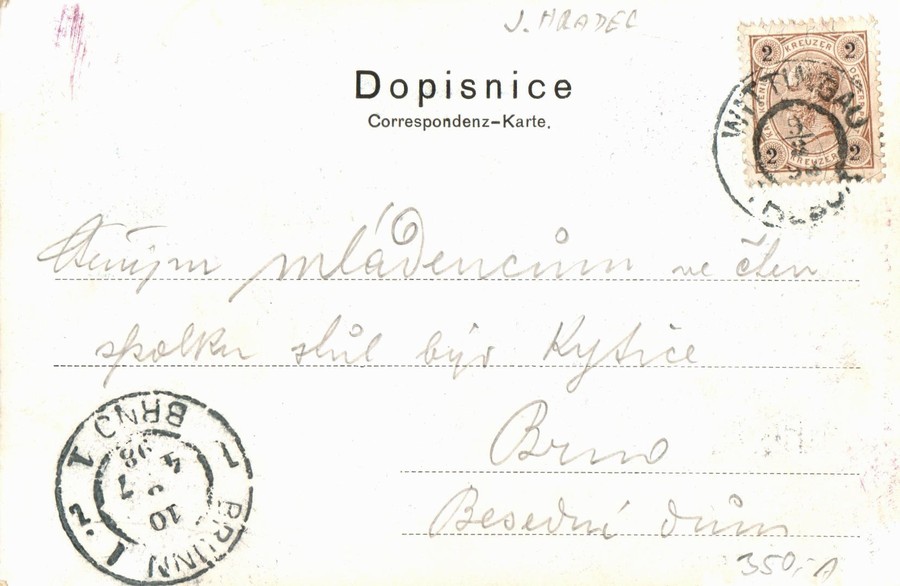 J. HRADEC
Dopisnice
Correspondenz-Karte.
2 KREUZER 2
2 KREUZER 2
WITTINGAU
mládencům ve čten
spolku stůl býv Kytice
Brno
Besední dům
BRNO 1
98
4 7
10
BRÜNN 1
350,-